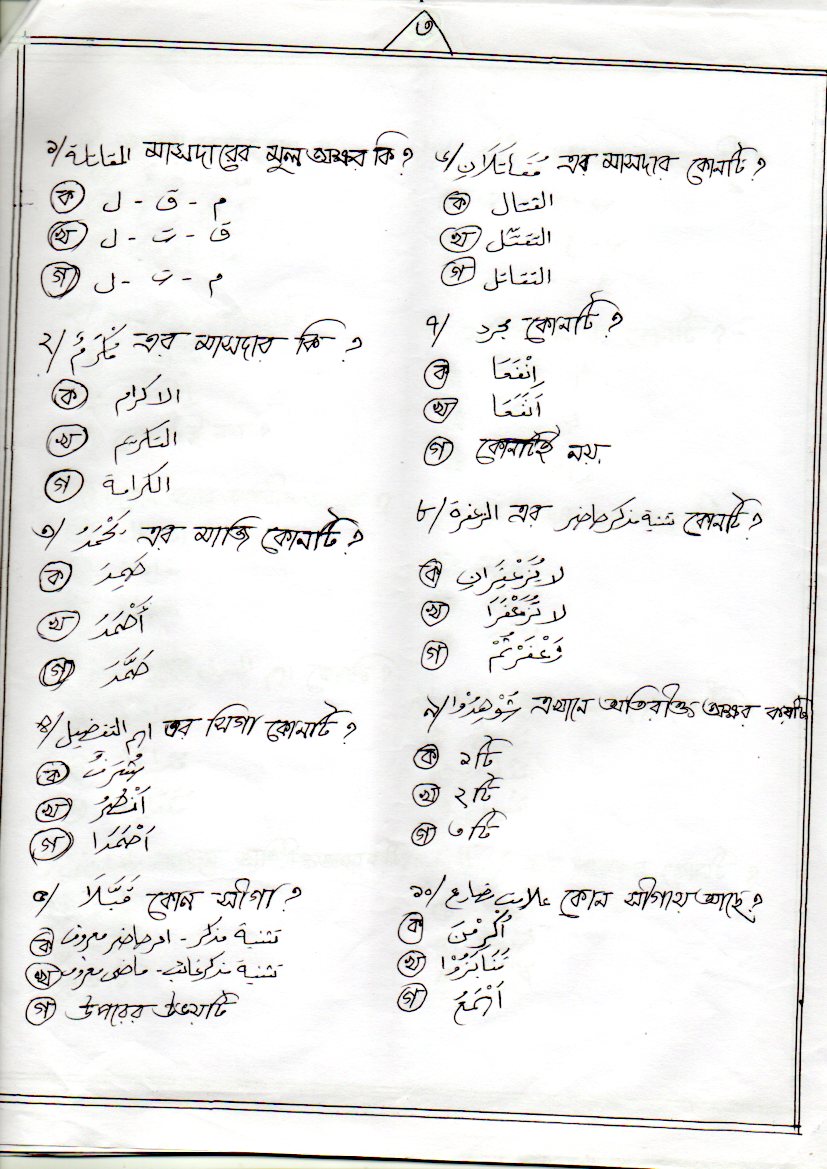 ৩
১/ المقاتلة মাসদারের মূল অক্ষর কি?
ক م - ق - ل
খ ق - ت - ل
গ م - ت - ل
২/ مُكْرَمٌ এর মাসদার কি?
ক الاكرام
খ التكريم
গ الكرامة
৩/ يُحْمَدُ এর মাজি কোনটি?
ক حَمِدَ
খ أَحْمَدَ
গ حَمَّدَ
৪/ اسم التفضيل এর ছিগা কোনটি?
ক
খ
গ اَحْمَدَا
৫/ قَبَّلَا কোন সীগা?
ক تثنية مذكر - امر حاضر معروف
খ تثنية مذكر غائب - ماضى معروف
গ উপরের উভয়টি
৬/ مُقَاتَلَانِ এর মাসদার কোনটি?
ক القتال
খ التقتّل
গ التقاتل
৭/ مجرد কোনটি?
ক اِنْفَعَا
খ
গ কোনটিই নয়.
৮/ الزعفرة এর تثنية مذكر حاضر কোনটি?
ক لا تُزَعْفِرَانِ
খ لا تُزَعْفَرَا
গ
৯/ شُوْهِدُوْا এখানে অতিরিক্ত অক্ষর কয়টি
ক ১টি
খ ২টি
গ ৩টি
১০/ علامت مضارع কোন সীগায় আছে?
ক اُكْرِمْنَ
খ تَنَابَزُوْا
গ اَجْمَعُ